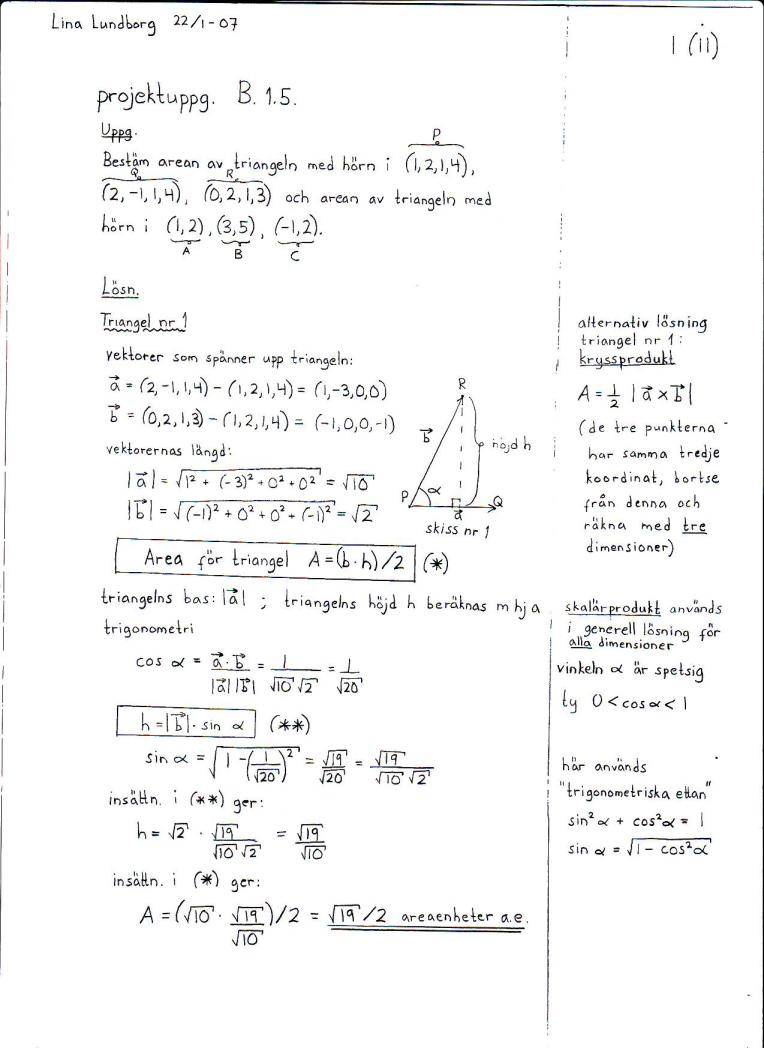 Lina Lundborg 22/1-07
1 (ii)
projektuppg. B. 1.5.
Uppg.
P
Bestäm arean av triangeln med hörn i (1,2,1,4),
Q R
(2,-1,1,4), (0,2,1,3) och arean av triangeln med
hörn i (1,2), (3,5), (-1,2).
A B C
Lösn.
Triangel nr 1
vektorer som spänner upp triangeln:
a⃗ = (2,-1,1,4) - (1,2,1,4) = (1,-3,0,0)
b⃗ = (0,2,1,3) - (1,2,1,4) = (-1,0,0,-1)
vektorernas längd:
|a⃗| = √(1² + (-3)² + 0² + 0²) = √10
|b⃗| = √((-1)² + 0² + 0² + (-1)²) = √2
R
b⃗
höjd h
P α Q
a⃗
skiss nr 1
Area för triangel A = (b·h)/2 (*)
triangelns bas: |a⃗| ; triangelns höjd h beräknas m hj a
trigonometri
cos α = a⃗·b⃗ / |a⃗||b⃗| = 1/√10 √2 = 1/√20
h = |b⃗|· sin α (**)
sin α = √(1 - (1/√20)²) = √19/√20 = √19/√10 √2
insättn. i (**) ger:
h = √2 · √19/√10 √2 = √19/√10
insättn. i (*) ger:
A = (√10 · √19/√10)/2 = √19/2 areaenheter a.e.
alternativ lösning
triangel nr 1:
kryssprodukt
A = 1/2 |a⃗ x b⃗|
(de tre punkterna
har samma tredje
koordinat, bortse
från denna och
räkna med tre
dimensioner)
skalärprodukt används
i generell lösning för
alla dimensioner
vinkeln α är spetsig
ty 0 < cos α < 1
här används
"trigonometriska ettan"
sin²α + cos²α = 1
sin α = √(1 - cos²α)